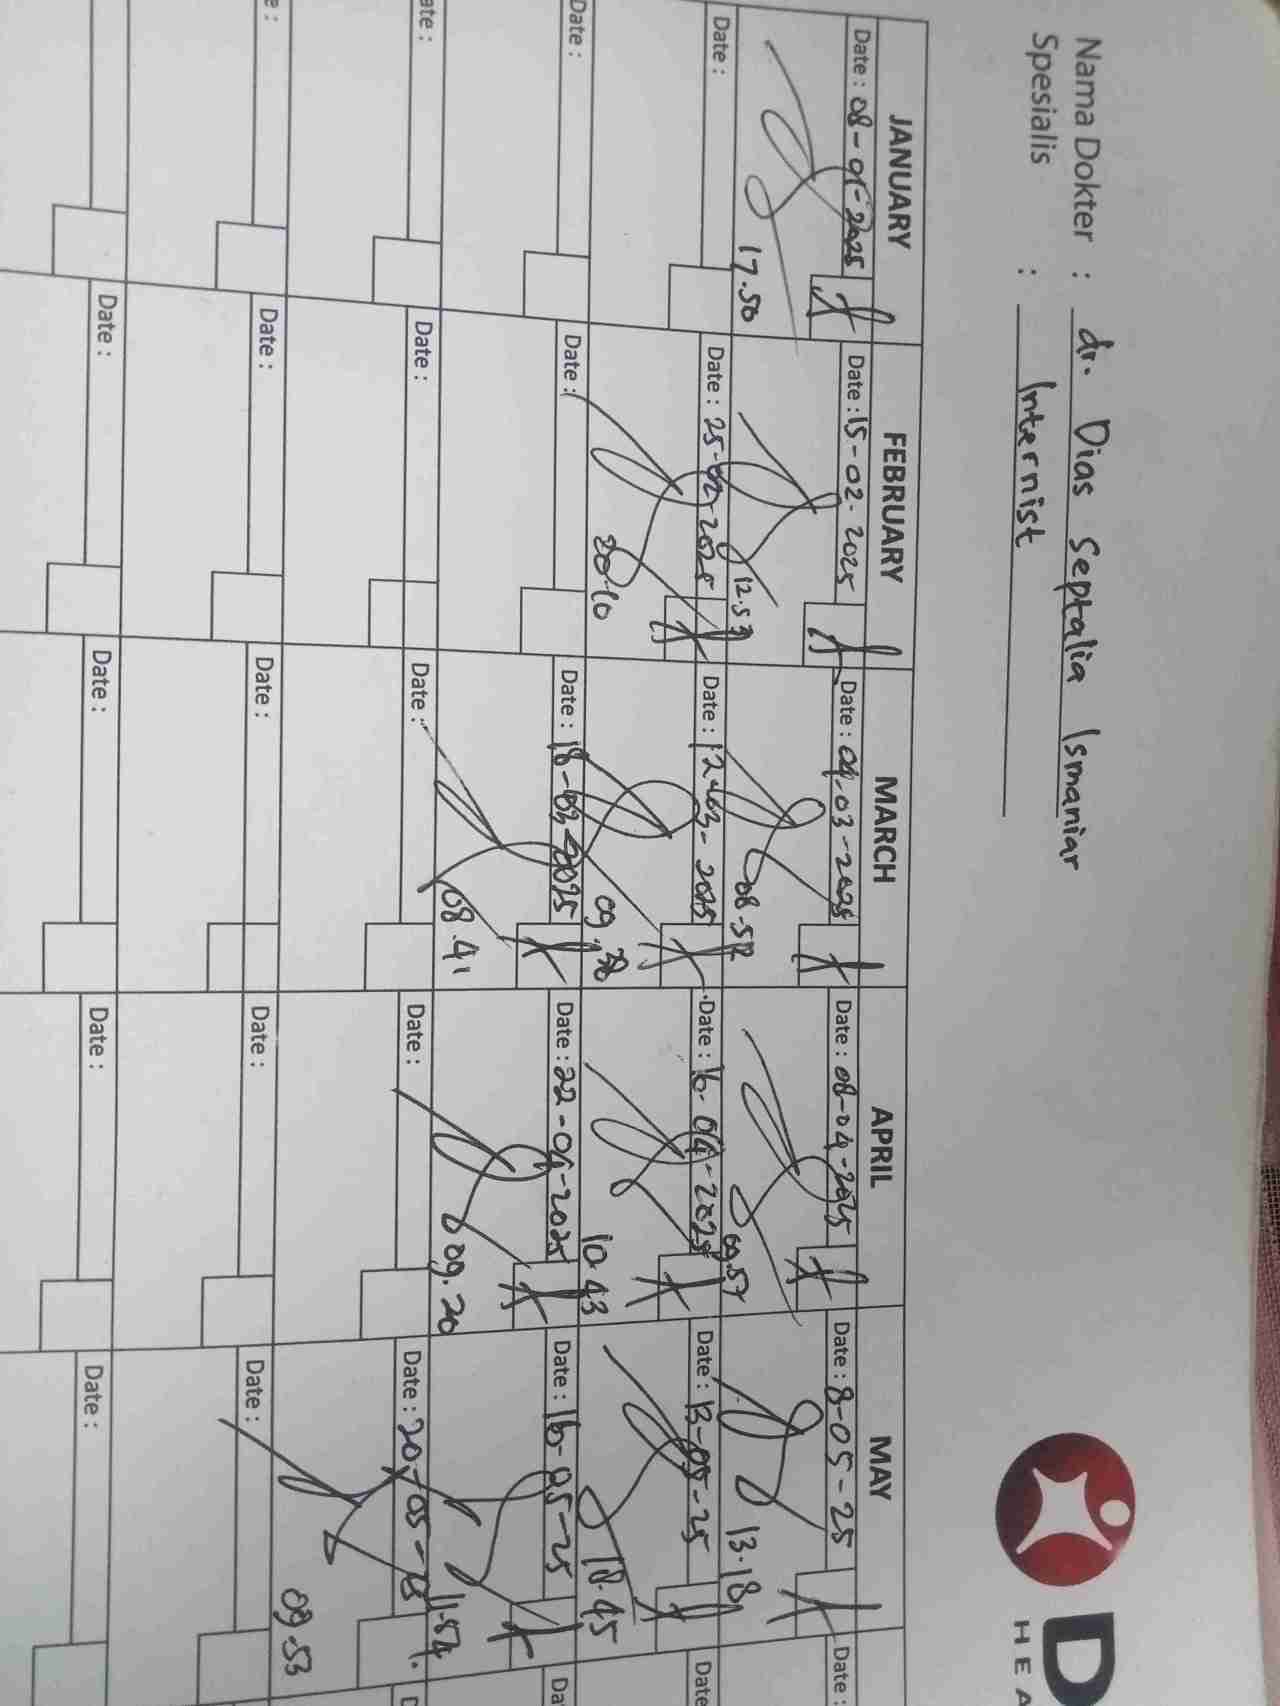 Nama Dokter : dr. Dias Septalia Ismaniar
Spesialis : Internist
D
HEA
JANUARY FEBRUARY MARCH APRIL MAY
Date : 08-01-2025 Date : 15-02-2025 Date : 04-03-2025 Date : 08-04-2025 Date : 8-05-25 Date :
17.50 12.53 08.52 09.57 13.18
Date : Date : 25-02-2025 Date : 12-03-2025 Date : 16-04-2025 Date : 13-05-25 Date
20.10 09.38 10.43 18.45
Date : Date : Date : 18-03-2025 Date : 22-04-2025 Date : 16-05-25 Da
08.41 09.20 11.54
ate : Date : Date : Date : Date : 20-05-25 D
09.53
e : Date : Date : Date : Date :
Date : Date : Date : Date :